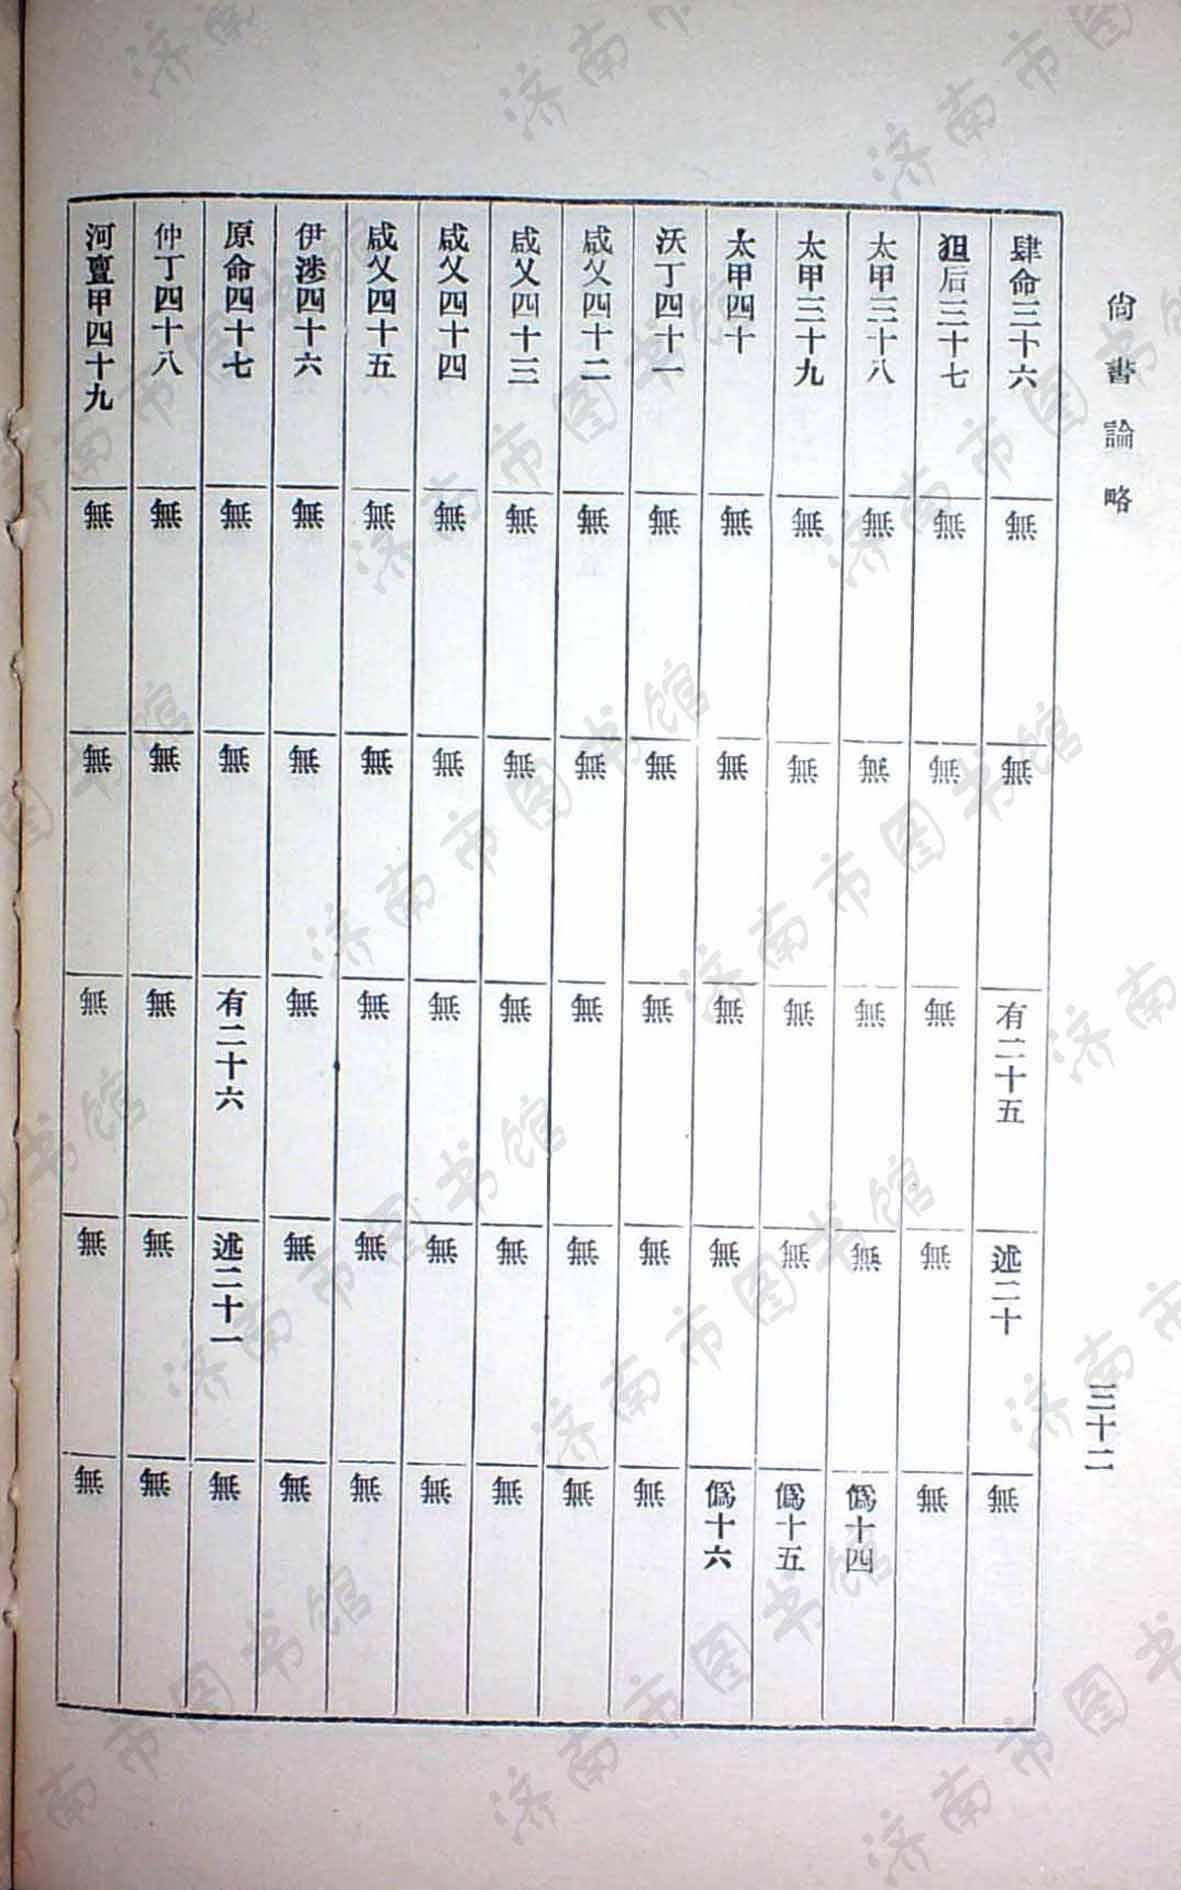 尙書論略
三十二
肆命三十六 無 無 有二十五 述二十 無
狙后三十七 無 無 無 無 無
太甲三十八 無 無 無 無 僞十四
太甲三十九 無 無 無 無 僞十五
太甲四十 無 無 無 無 僞十六
沃丁四十一 無 無 無 無 無
咸乂四十二 無 無 無 無 無
咸乂四十三 無 無 無 無 無
咸乂四十四 無 無 無 無 無
咸乂四十五 無 無 無 無 無
伊涉四十六 無 無 無 無 無
原命四十七 無 無 有二十六 述二十一 無
仲丁四十八 無 無 無 無 無
河亶甲四十九 無 無 無 無 無
济南市图书馆